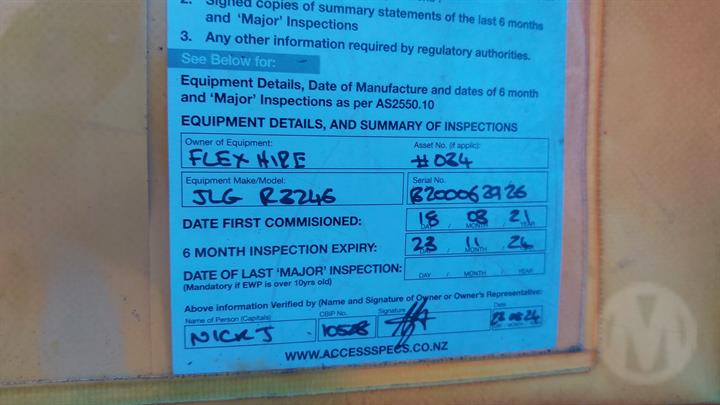 2. Signed copies of summary statements of the last 6 months
and 'Major' Inspections
3. Any other information required by regulatory authorities.
See Below for:
Equipment Details, Date of Manufacture and dates of 6 month
and 'Major' Inspections as per AS2550.10
EQUIPMENT DETAILS, AND SUMMARY OF INSPECTIONS
Owner of Equipment: Asset No. (if applic):
FLEX HIRE #034
Equipment Make/Model: Serial No.
JLG R3246 B200063926
DATE FIRST COMMISIONED: 18 03 21
DAY / MONTH / YEAR
6 MONTH INSPECTION EXPIRY: 23 11 24
DAY / MONTH / YEAR
DATE OF LAST 'MAJOR' INSPECTION:
(Mandatory if EWP is over 10yrs old) DAY / MONTH / YEAR
Above information Verified by (Name and Signature of Owner or Owner's Representative:
Name of Person (Capitals) CBIP No. Signature Date
NICK J 10528 24
WWW.ACCESSSPECS.CO.NZ
M